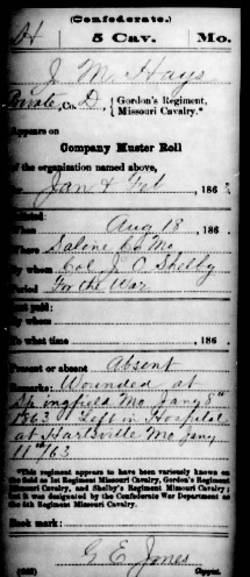 (Confederate.)
H 5 Cav. Mo.
J. M. Hays
Private, Co. D, Gordon's Regiment,
Missouri Cavalry.*
Appears on
Company Muster Roll
of the organization named above,
Jan & Feb , 186
Enlisted:
When Aug 18 , 186
Where Saline Co Mo
By whom Col J. O. Shelby
Period For the War
Last paid:
By whom
To what time , 186
Present or absent Absent
Remarks: Wounded at
Springfield Mo Jany 8"
1863 Left in Hospital
at Hartsville Mo Jany
11"/63
*This regiment appears to have been variously known on
the field as 1st Regiment Missouri Cavalry, Gordon's Regiment
Missouri Cavalry, and Shelby's Regiment Missouri Cavalry;
but it was designated by the Confederate War Department as
the 5th Regiment Missouri Cavalry.
Book mark:
G E Jones
Copyist.